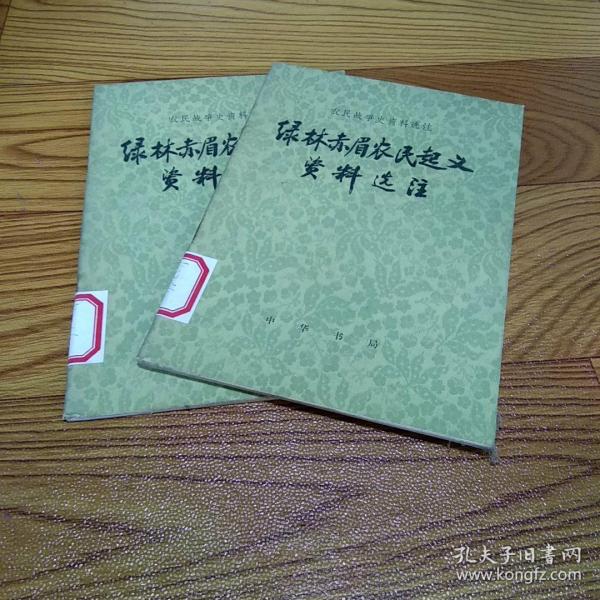 农民战争史资料
绿林赤眉农
资料
农民战争史资料选注
绿林赤眉农民起义
资料选注
中华书局
孔夫子旧书网
www.kongfz.com